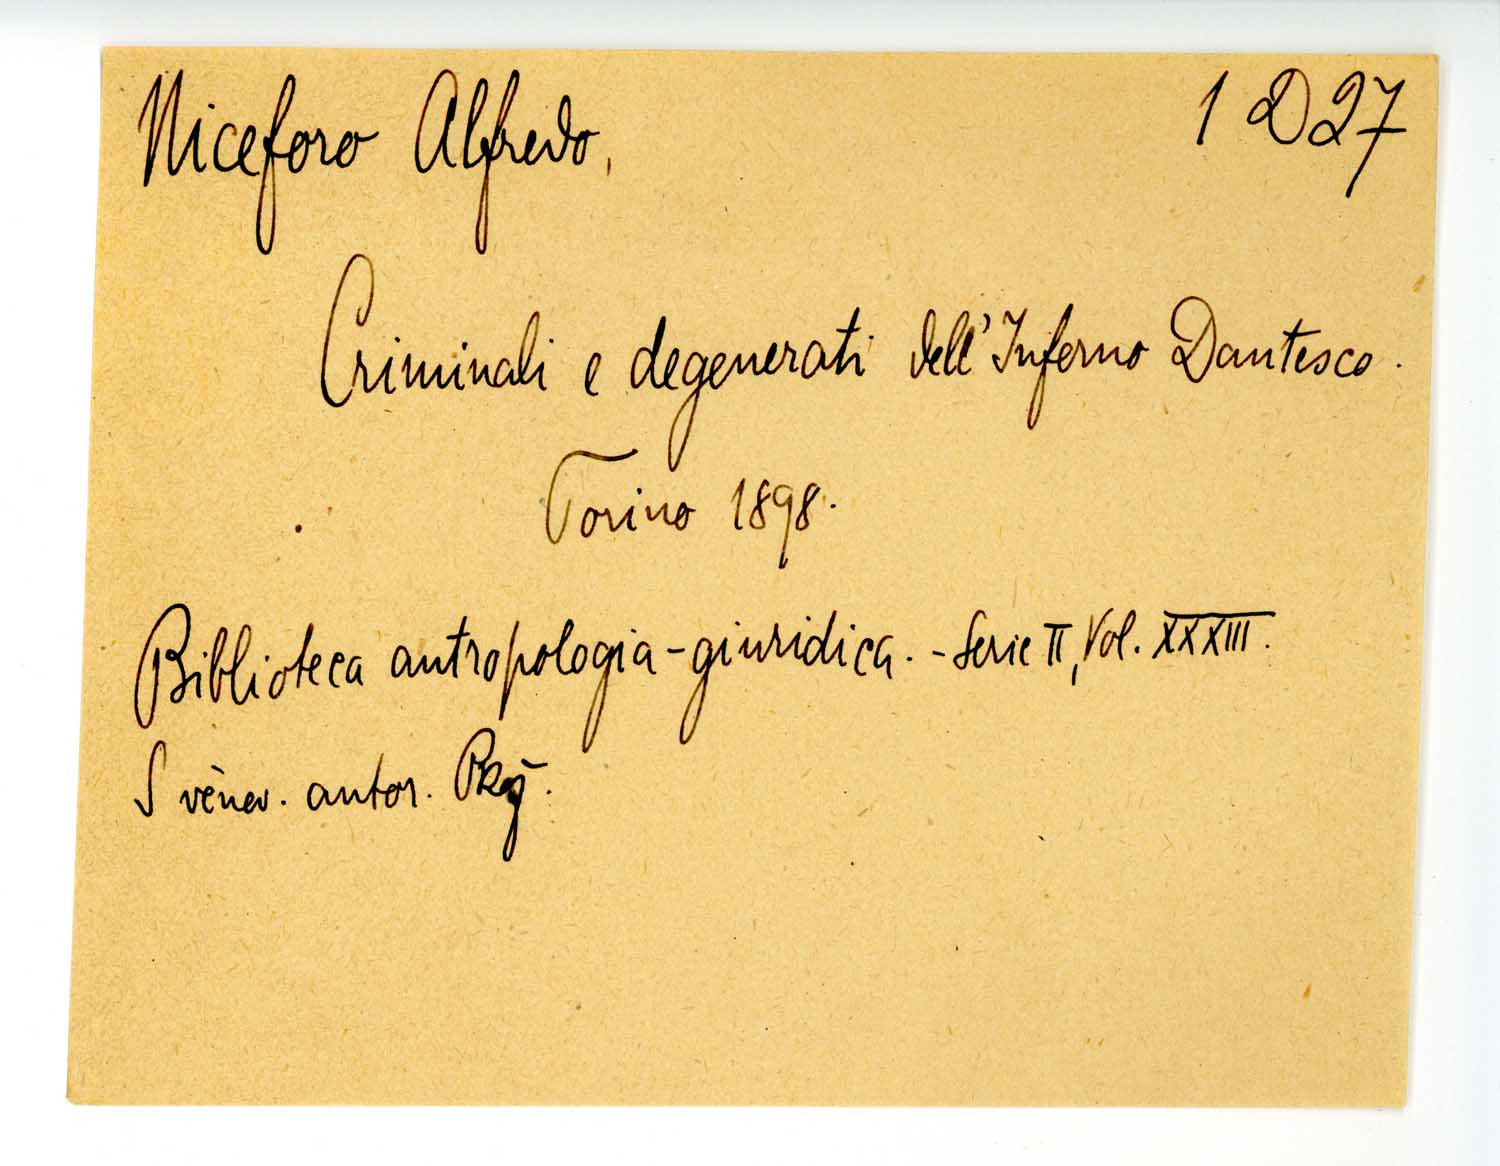 Niceforo Alfredo, 1 D27
Criminali e degenerati dell'Inferno Dantesco.
Torino 1898.
Biblioteca antropologia-giuridica. - Serie II, Vol. XXXIII.
S věnov. autor.